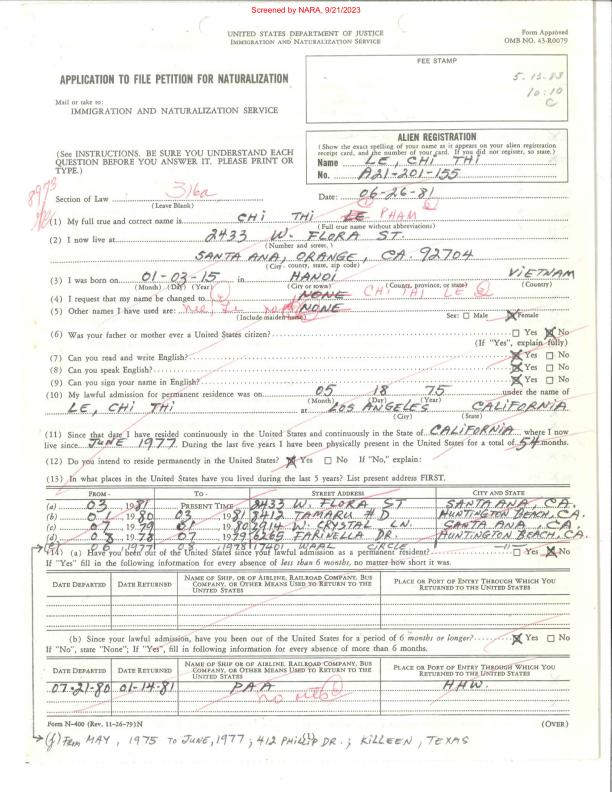 Screened by NARA, 9/21/2023
UNITED STATES DEPARTMENT OF JUSTICE
IMMIGRATION AND NATURALIZATION SERVICE
Form Approved
OMB NO. 43-R0079
FEE STAMP
10:10
C
APPLICATION TO FILE PETITION FOR NATURALIZATION
Mail or take to:
IMMIGRATION AND NATURALIZATION SERVICE
(See INSTRUCTIONS. BE SURE YOU UNDERSTAND EACH QUESTION BEFORE YOU ANSWER IT. PLEASE PRINT OR TYPE.)
ALIEN REGISTRATION
(Show the exact spelling of your name as it appears on your alien registration receipt card, and the number of your card. If you did not register, so state.)
Name LE, CHI THI
No. A21-201-155
8973
Section of Law 316a
(Leave Blank)
Date: 06-26-81
(1) My full true and correct name is CHI THI LE PHAM
(Full true name without abbreviations)
(2) I now live at 2433 W. FLORA ST.
(Number and street,)
SANTA ANA, ORANGE, CA. 92704
(City, county, state, zip code)
(3) I was born on 01-03-15 in HANOI VIETNAM
(Month) (Day) (Year) (City or town) (County, province, or state) (Country)
(4) I request that my name be changed to NONE CHI THI LE
(5) Other names I have used are: NONE
(Include maiden name) Sex: ☐ Male ☒ Female
(6) Was your father or mother ever a United States citizen? ☐ Yes ☒ No
(If "Yes", explain fully)
(7) Can you read and write English? ☒ Yes ☐ No
(8) Can you speak English? ☒ Yes ☐ No
(9) Can you sign your name in English? ☒ Yes ☐ No
(10) My lawful admission for permanent residence was on 05 18 75 under the name of
(Month) (Day) (Year)
LE, CHI THI at LOS ANGELES CALIFORNIA
(City) (State)
(11) Since that date I have resided continuously in the United States and continuously in the State of CALIFORNIA where I now
live since JUNE 1977. During the last five years I have been physically present in the United States for a total of 54 months.
(12) Do you intend to reside permanently in the United States? ☒ Yes ☐ No If "No," explain:
(13) In what places in the United States have you lived during the last 5 years? List present address FIRST.
FROM- TO- STREET ADDRESS CITY AND STATE
(a) 03, 1981 PRESENT TIME 2433 W. FLORA ST SANTA ANA, CA.
(b) 01, 1980 03, 1981 8412 TAMARU #D HUNTINGTON BEACH, CA.
(c) 07, 1979 01, 1980 3914 W. CRYSTAL LN. SANTA ANA, CA.
(d) 08, 1978 07, 1979 6265 FARINELLA DR. HUNTINGTON BEACH, CA.
(e) 06 1977 08 1978 17401 WAAL CIRCLE -"-
(14) (a) Have you been out of the United States since your lawful admission as a permanent resident? ☐ Yes ☒ No
If "Yes" fill in the following information for every absence of less than 6 months, no matter how short it was.
DATE DEPARTED DATE RETURNED NAME OF SHIP, OR OF AIRLINE, RAILROAD COMPANY, BUS COMPANY, OR OTHER MEANS USED TO RETURN TO THE UNITED STATES PLACE OR PORT OF ENTRY THROUGH WHICH YOU RETURNED TO THE UNITED STATES
(b) Since your lawful admission, have you been out of the United States for a period of 6 months or longer? ☒ Yes ☐ No
If "No", state "None"; If "Yes", fill in following information for every absence of more than 6 months.
DATE DEPARTED DATE RETURNED NAME OF SHIP, OR OF AIRLINE, RAILROAD COMPANY, BUS COMPANY, OR OTHER MEANS USED TO RETURN TO THE UNITED STATES PLACE OR PORT OF ENTRY THROUGH WHICH YOU RETURNED TO THE UNITED STATES
07-21-80 01-14-81 PAA HHW.
Form N-400 (Rev. 11-26-79)N
(OVER)
(f) FROM MAY, 1975 TO JUNE, 1977; 412 PHILLIP DR.; KILLEEN, TEXAS